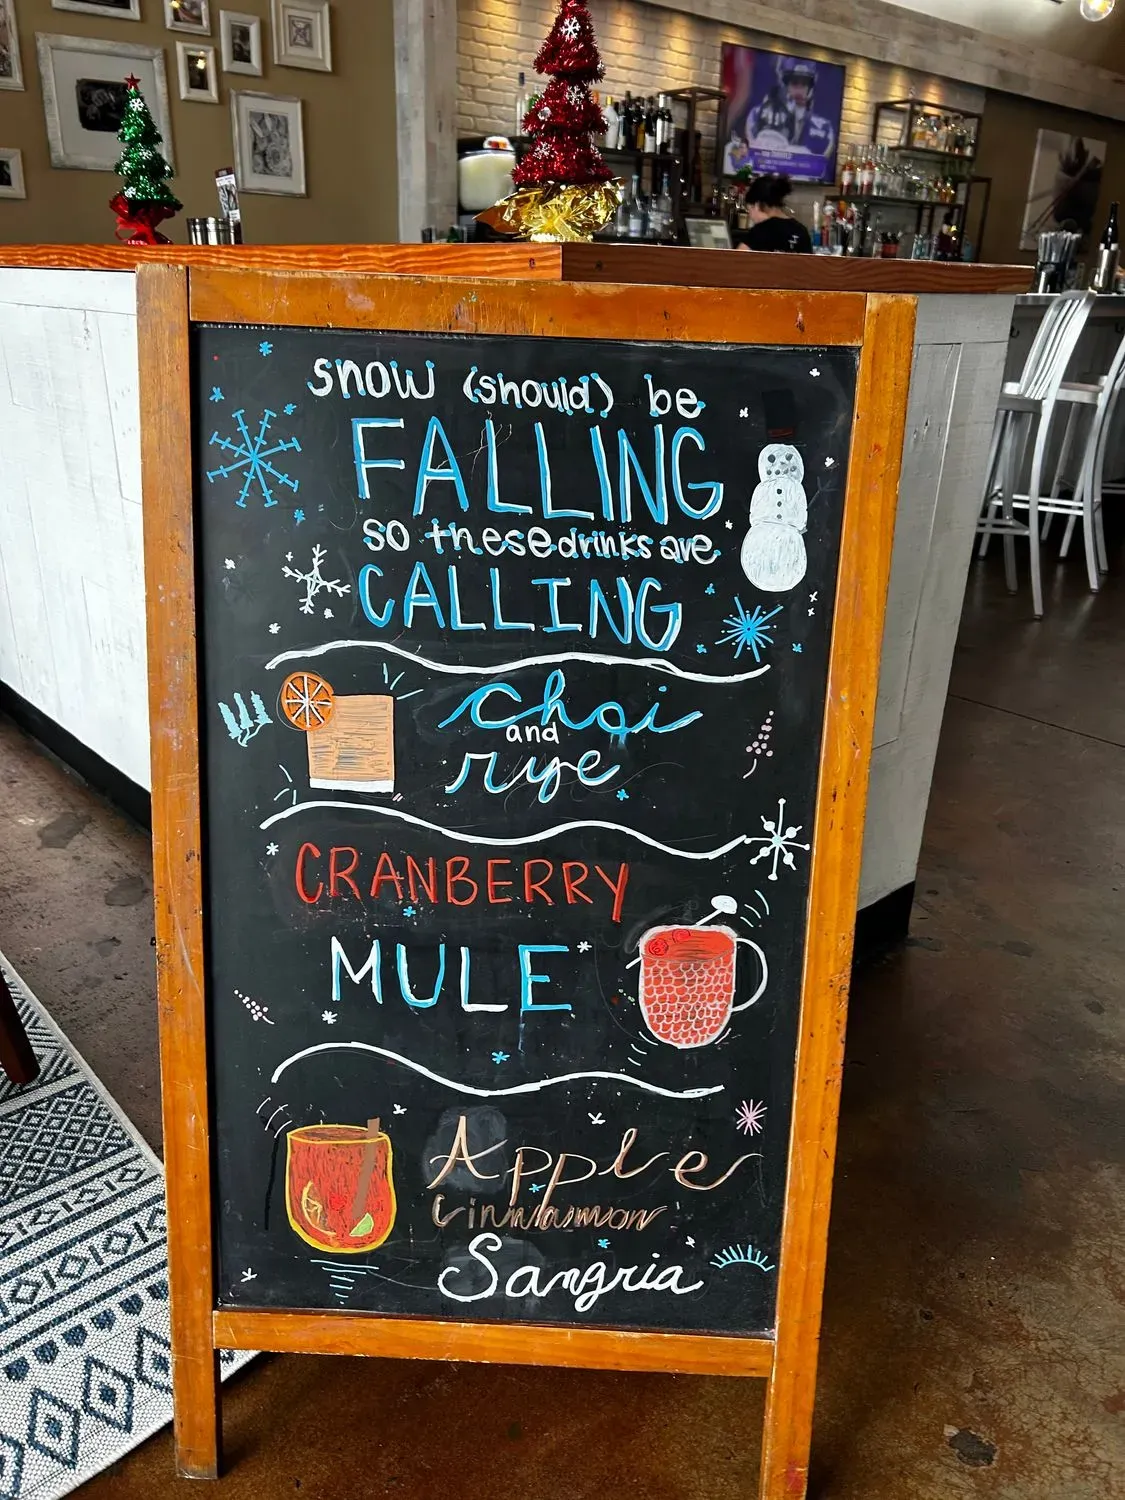 snow (should) be
FALLING
so these drinks are
CALLING
Chai
and
rye
CRANBERRY
MULE
Apple
Cinnamon
Sangria